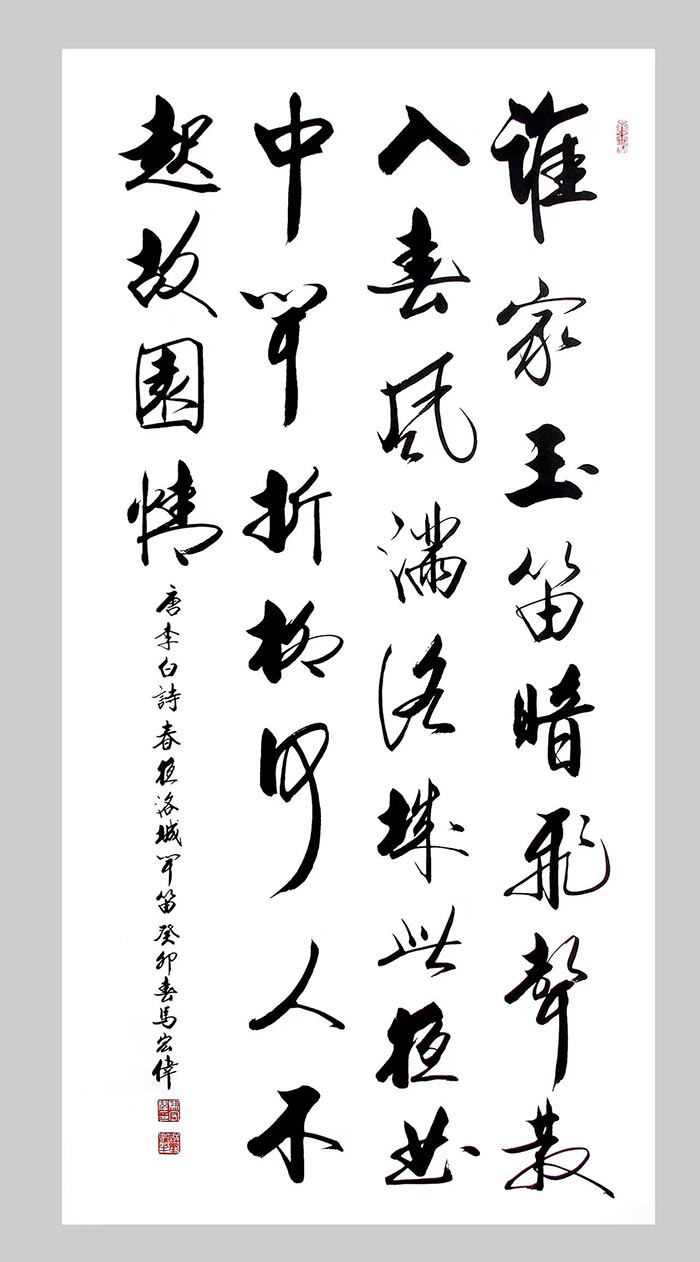 誰家玉笛暗飛聲散
入春風滿洛城此夜曲
中聞折柳何人不
起故園情
唐李白詩春夜洛城聞笛癸卯春馬宏偉